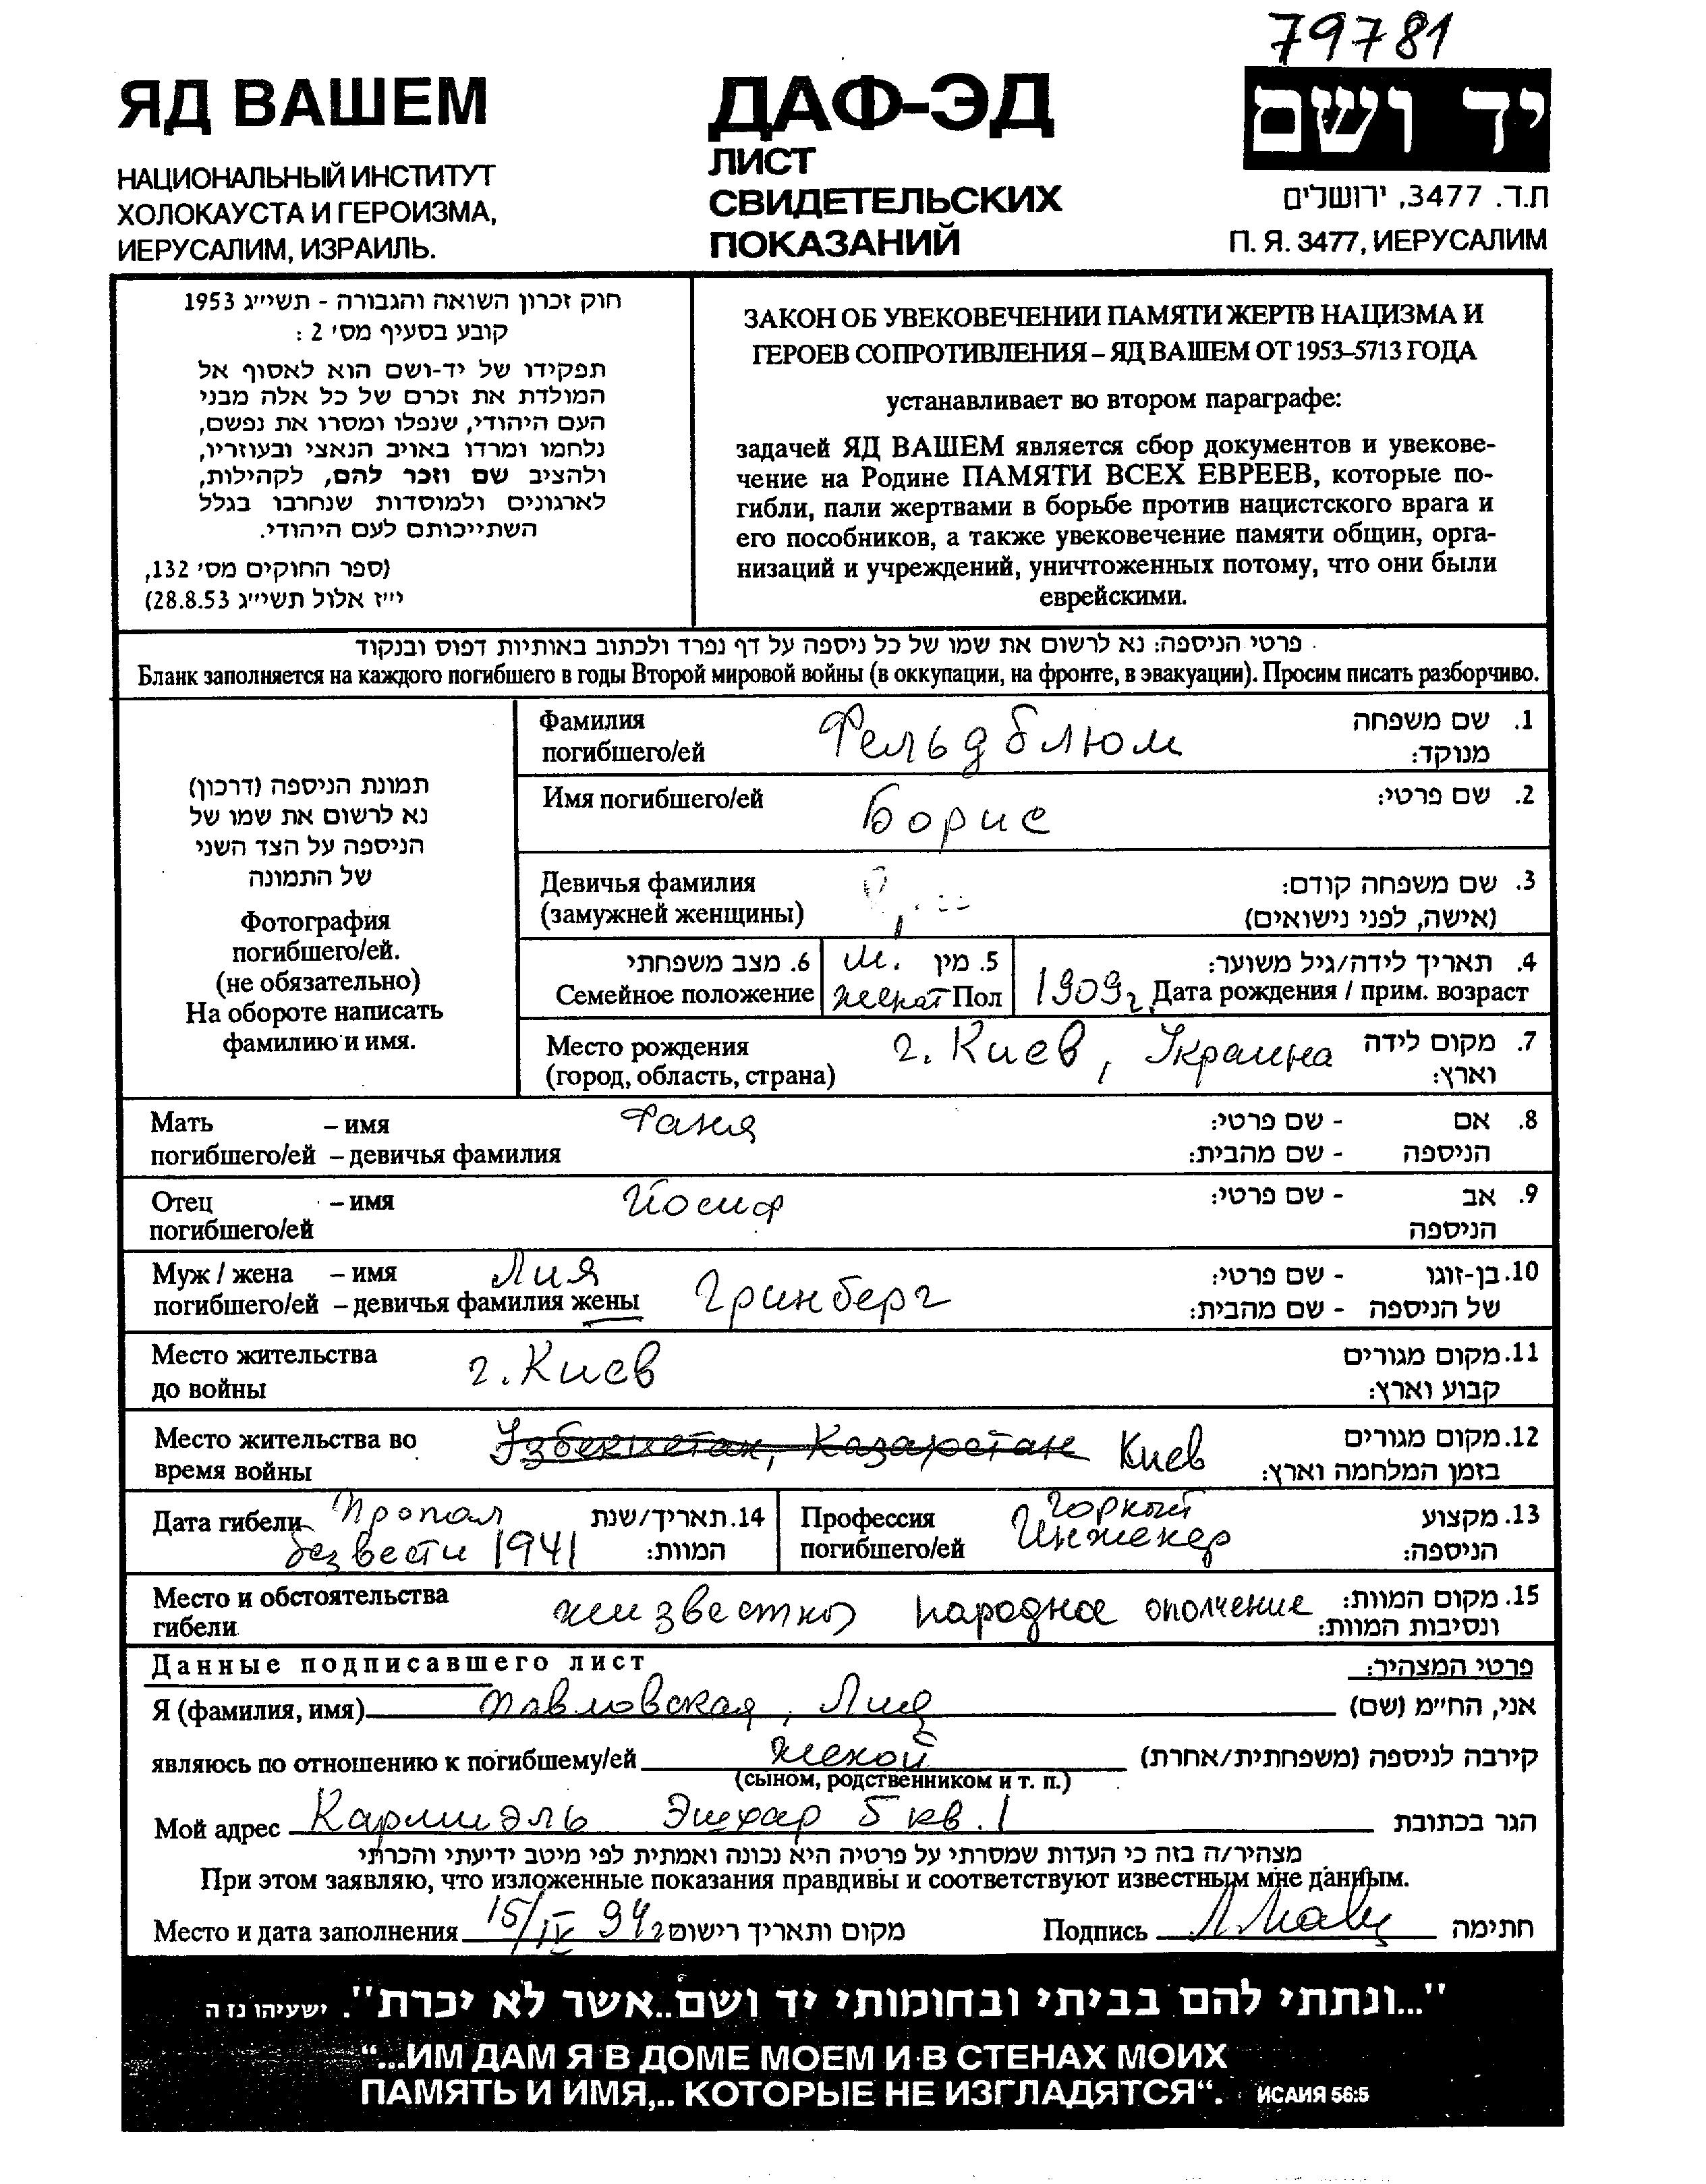 79781
ЯД ВАШЕМ
НАЦИОНАЛЬНЫЙ ИНСТИТУТ
ХОЛОКАУСТА И ГЕРОИЗМА,
ИЕРУСАЛИМ, ИЗРАИЛЬ.
ДАФ-ЭД
ЛИСТ
СВИДЕТЕЛЬСКИХ
ПОКАЗАНИЙ
יד ושם
ת.ד. 3477, ירושלים
П. Я. 3477, ИЕРУСАЛИМ
חוק זכרון השואה והגבורה - תשי״ג 1953
קובע בסעיף מס׳ 2 :
תפקידו של יד-ושם הוא לאסוף אל
המולדת את זכרם של כל אלה מבני
העם היהודי, שנפלו ומסרו את נפשם,
נלחמו ומרדו באויב הנאצי ובעוזריו,
ולהציב שם וזכר להם, לקהילות,
לארגונים ולמוסדות שנחרבו בגלל
השתייכותם לעם היהודי.
(ספר החוקים מס׳ 132,
י״ז אלול תשי״ג 28.8.53)
ЗАКОН ОБ УВЕКОВЕЧЕНИИ ПАМЯТИ ЖЕРТВ НАЦИЗМА И
ГЕРОЕВ СОПРОТИВЛЕНИЯ – ЯД ВАШЕМ ОТ 1953–5713 ГОДА
устанавливает во втором параграфе:
задачей ЯД ВАШЕМ является сбор документов и увекове-
чение на Родине ПАМЯТИ ВСЕХ ЕВРЕЕВ, которые по-
гибли, пали жертвами в борьбе против нацистского врага и
его пособников, а также увековечение памяти общин, орга-
низаций и учреждений, уничтоженных потому, что они были
еврейскими.
פרטי הניספה: נא לרשום את שמו של כל ניספה על דף נפרד ולכתוב באותיות דפוס ובנקוד
Бланк заполняется на каждого погибшего в годы Второй мировой войны (в оккупации, на фронте, в эвакуации). Просим писать разборчиво.
תמונת הניספה (דרכון)
נא לרשום את שמו של
הניספה על הצד השני
של התמונה
Фотография
погибшего/ей.
(не обязательно)
На обороте написать
фамилию и имя.
Фамилия Фельдблюм 1. שם משפחה
погибшего/ей מנוקד:
Имя погибшего/ей Борис 2. שם פרטי:
Девичья фамилия 3. שם משפחה קודם:
(замужней женщины) (אישה, לפני נישואים)
6. מצב משפחתי м. 5. מין 4. תאריך לידה/גיל משוער:
Семейное положение женат Пол 1909г. Дата рождения / прим. возраст
Место рождения г. Киев, Украина 7. מקום לידה
(город, область, страна) וארץ:
Мать – имя Фаня 8. אם - שם פרטי:
погибшего/ей – девичья фамилия הניספה - שם מהבית:
Отец – имя Йосиф 9. אב - שם פרטי:
погибшего/ей הניספה
Муж / жена – имя Лия 10. בן-זוגו - שם פרטי:
погибшего/ей – девичья фамилия жены Гринберг של הניספה - שם מהבית:
Место жительства г. Киев 11. מקום מגורים
до войны קבוע וארץ:
Место жительства во Узбекистан, Казахстан Киев 12. מקום מגורים
время войны בזמן המלחמה וארץ:
Дата гибели Пропал 14. תאריך/שנת
без вести 1941 המוות:
Профессия горный 13. מקצוע
погибшего/ей Инженер הניספה:
Место и обстоятельства неизвестно народное ополчение 15. מקום המוות:
гибели ונסיבות המוות:
Данные подписавшего лист פרטי המצהיר:
Я (фамилия, имя) Павловская, Лия אני, הח״מ (שם)
являюсь по отношению к погибшему/ей женой קירבה לניספה (משפחתית/אחרת)
(сыном, родственником и т. п.)
Мой адрес Кармиэль Эшхар 5 кв. 1 הגר בכתובת
מצהיר/ה בזה כי העדות שמסרתי על פרטיה היא נכונה ואמתית לפי מיטב ידיעתי והכרתי
При этом заявляю, что изложенные показания правдивы и соответствуют известным мне данным.
Место и дата заполнения 15/IV 94г מקום ותאריך רישום Подпись חתימה
"...ונתתי להם בביתי ובחומותי יד ושם..אשר לא יכרת". ישעיהו נז ה
“...ИМ ДАМ Я В ДОМЕ МОЕМ И В СТЕНАХ МОИХ
ПАМЯТЬ И ИМЯ,.. КОТОРЫЕ НЕ ИЗГЛАДЯТСЯ“. ИСАИЯ 56:5